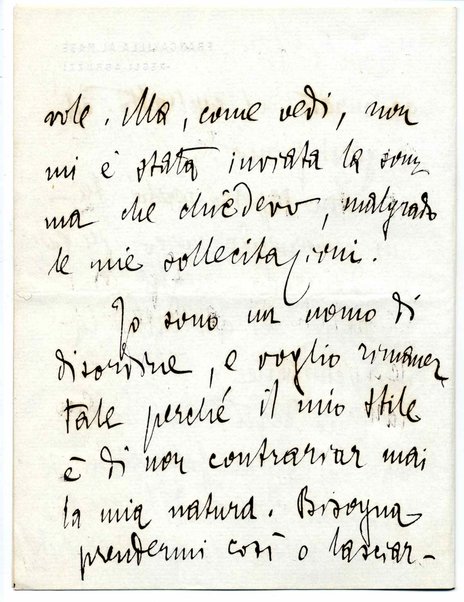 vole. Ma, come vedi, non
mi è stata inviata la som
ma che chiedevo, malgrado
le mie sollecitazioni.
Io sono un uomo di
disordine, e voglio rimaner
tale perché il mio stile
è di non contrariar mai
la mia natura. Bisogna
prendermi così o lasciar-